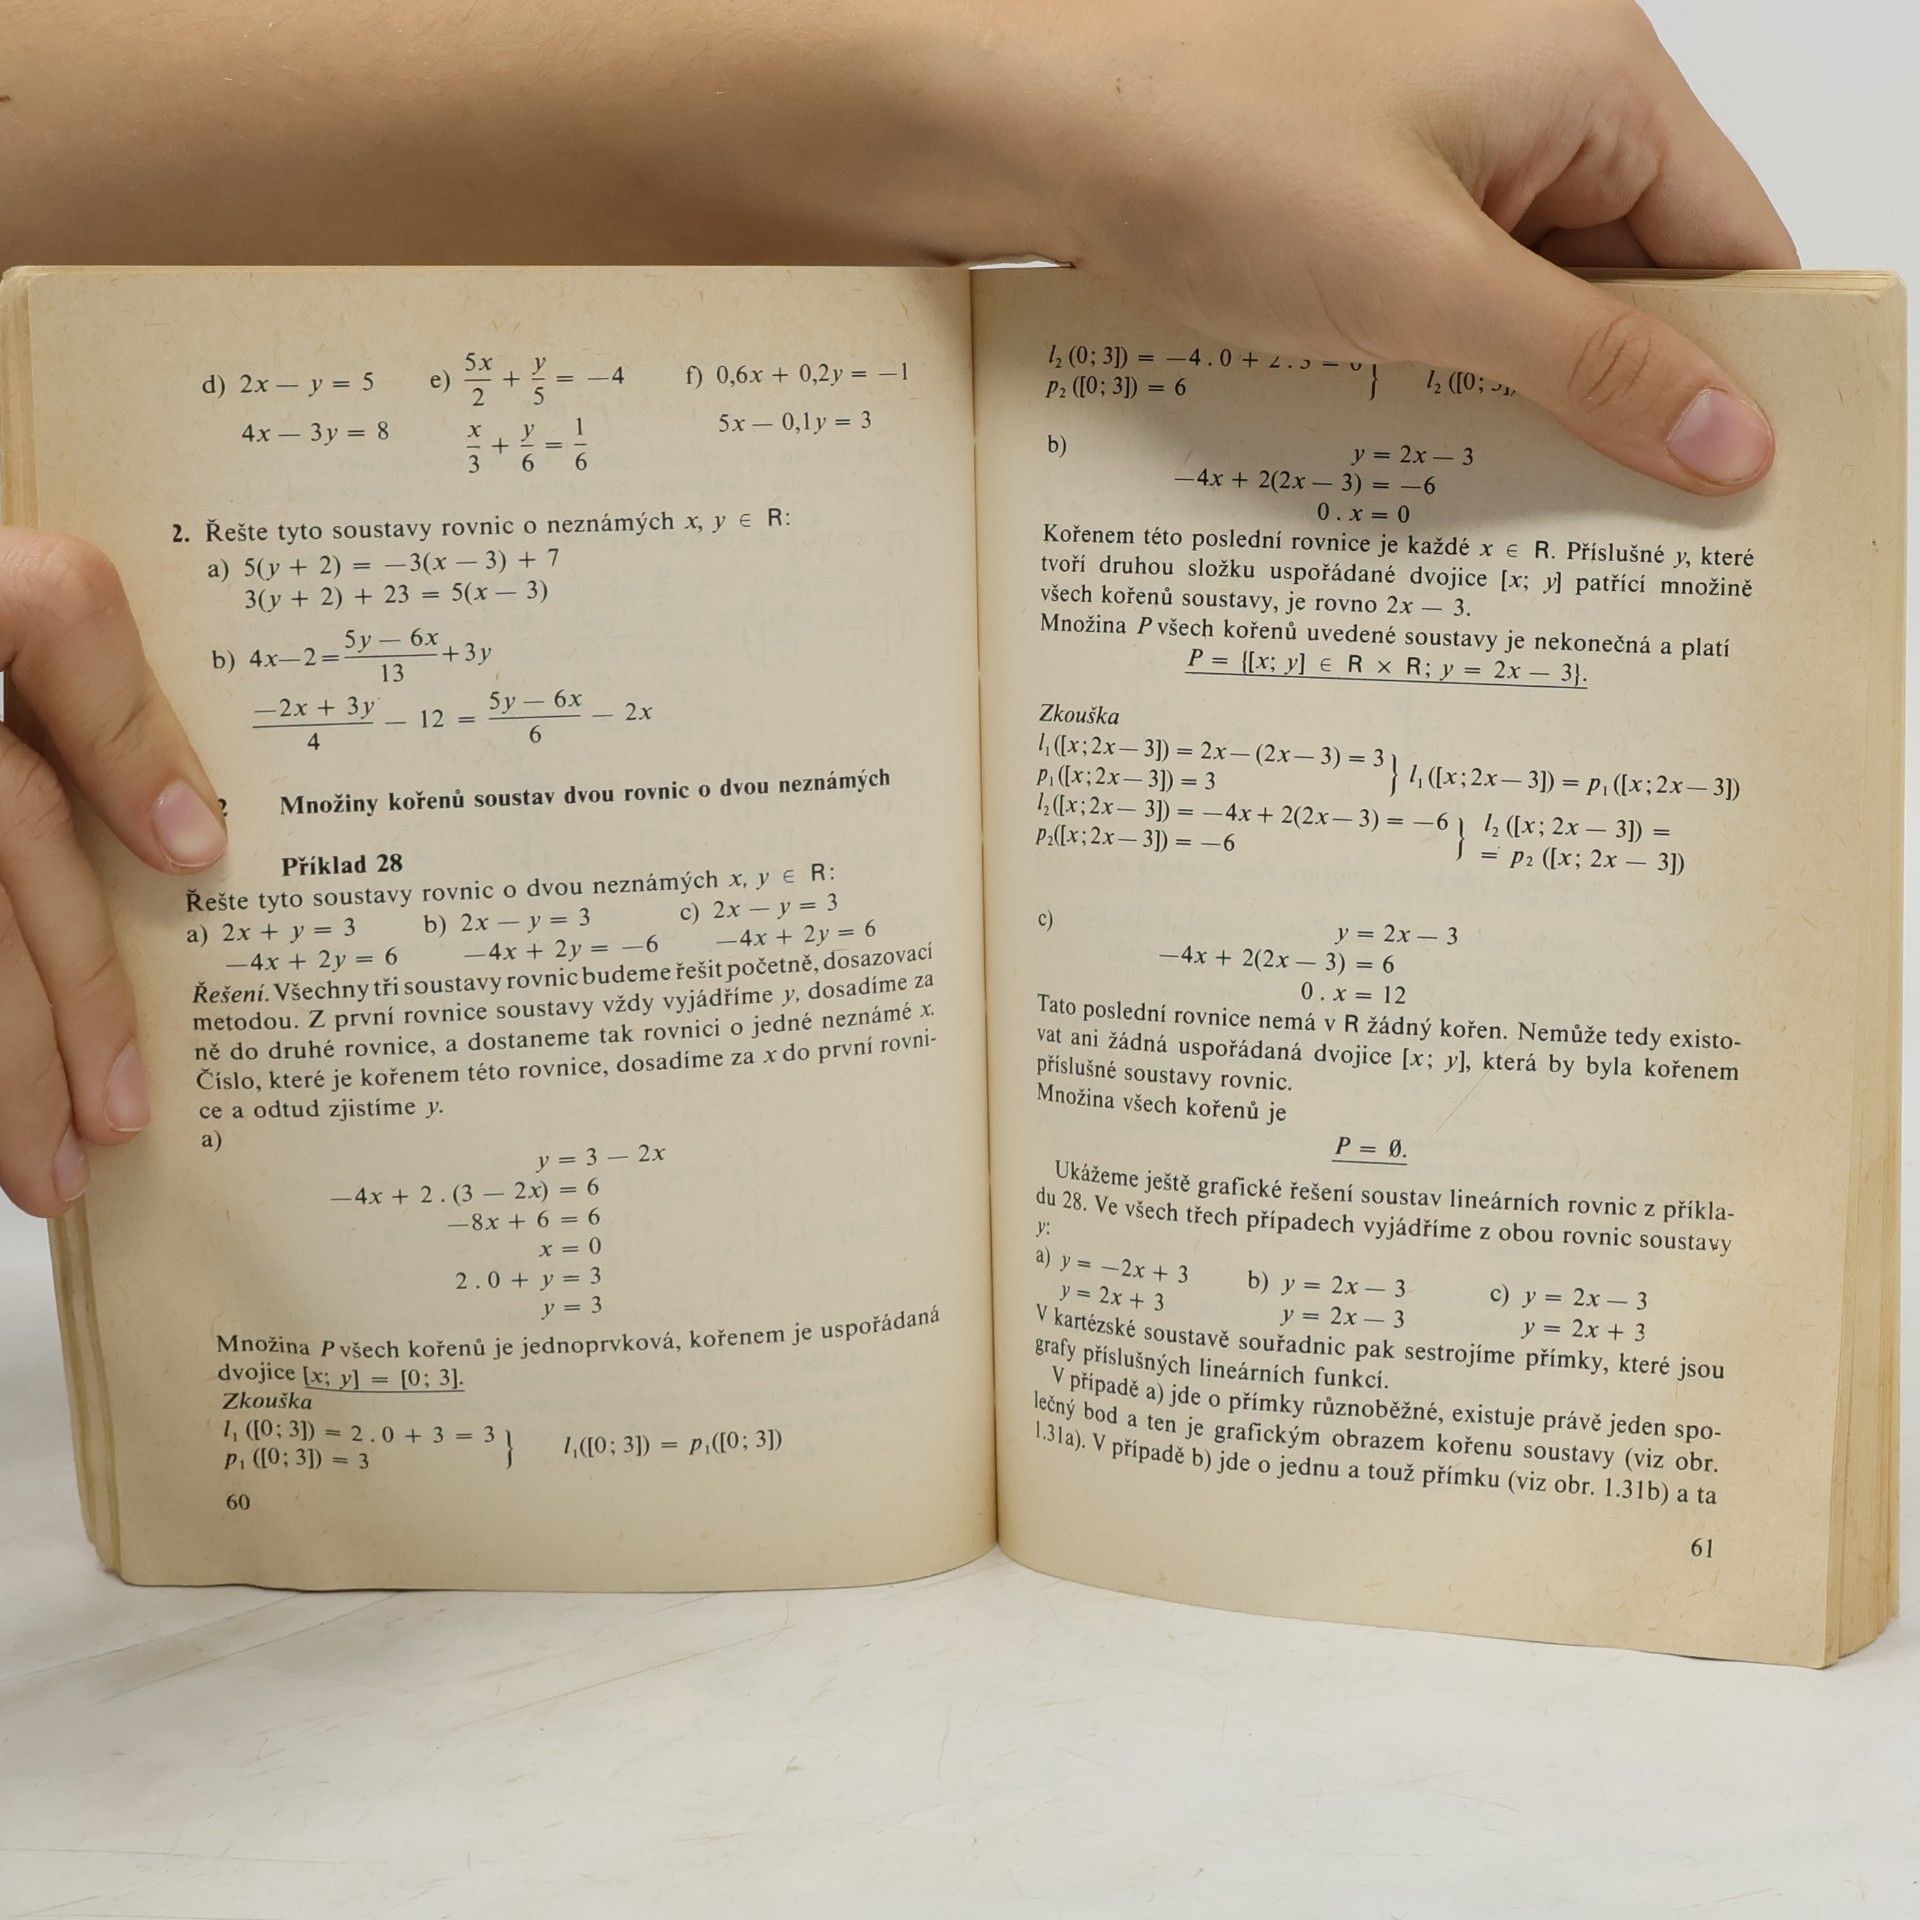 d) 2x — y = 5 e) 5x/2 + y/5 = —4 f) 0,6x + 0,2y = —1
4x — 3y = 8 x/3 + y/6 = 1/6 5x — 0,1y = 3
2. Řešte tyto soustavy rovnic o neznámých x, y ∈ R:
a) 5(y + 2) = —3(x — 3) + 7
3(y + 2) + 23 = 5(x — 3)
b) 4x—2=(5y — 6x)/13+3y
(—2x + 3y)/4 — 12 = (5y — 6x)/6 — 2x
Množiny kořenů soustav dvou rovnic o dvou neznámých
Příklad 28
Řešte tyto soustavy rovnic o dvou neznámých x, y ∈ R:
a) 2x + y = 3 b) 2x — y = 3 c) 2x — y = 3
—4x + 2y = 6 —4x + 2y = —6 —4x + 2y = 6
Řešení. Všechny tři soustavy rovnic budeme řešit početně, dosazovací
metodou. Z první rovnice soustavy vždy vyjádříme y, dosadíme za
ně do druhé rovnice, a dostaneme tak rovnici o jedné neznámé x.
Číslo, které je kořenem této rovnice, dosadíme za x do první rovni-
ce a odtud zjistíme y.
a)
y = 3 — 2x
—4x + 2 . (3 — 2x) = 6
—8x + 6 = 6
x = 0
2 . 0 + y = 3
y = 3
Množina P všech kořenů je jednoprvková, kořenem je uspořádaná
dvojice [x; y] = [0; 3].
Zkouška
l₁ ([0; 3]) = 2 . 0 + 3 = 3 } l₁([0; 3]) = p₁([0; 3])
p₁ ([0; 3]) = 3
60
l₂ (0; 3]) = —4 . 0 + 2 . 3 = 6 } l₂ ([0;
p₂ ([0; 3]) = 6
b)
y = 2x — 3
—4x + 2(2x — 3) = —6
0 . x = 0
Kořenem této poslední rovnice je každé x ∈ R. Příslušné y, které
tvoří druhou složku uspořádané dvojice [x; y] patřící množině
všech kořenů soustavy, je rovno 2x — 3.
Množina P všech kořenů uvedené soustavy je nekonečná a platí
P = {[x; y] ∈ R × R; y = 2x — 3}.
Zkouška
l₁([x; 2x — 3]) = 2x — (2x — 3) = 3 } l₁([x; 2x — 3]) = p₁([x; 2x — 3])
p₁([x; 2x — 3]) = 3
l₂([x; 2x — 3]) = —4x + 2(2x — 3) = —6 } l₂ ([x; 2x — 3]) =
p₂([x; 2x — 3]) = —6 = p₂ ([x; 2x — 3])
c)
y = 2x — 3
—4x + 2(2x — 3) = 6
0 . x = 12
Tato poslední rovnice nemá v R žádný kořen. Nemůže tedy existo-
vat ani žádná uspořádaná dvojice [x; y], která by byla kořenem
příslušné soustavy rovnic.
Množina všech kořenů je
P = Ø.
Ukážeme ještě grafické řešení soustav lineárních rovnic z příkla-
du 28. Ve všech třech případech vyjádříme z obou rovnic soustavy
y:
a) y = —2x + 3 b) y = 2x — 3 c) y = 2x — 3
y = 2x + 3 y = 2x — 3 y = 2x + 3
V kartézské soustavě souřadnic pak sestrojíme přímky, které jsou
grafy příslušných lineárních funkcí.
V případě a) jde o přímky různoběžné, existuje právě jeden spo-
lečný bod a ten je grafickým obrazem kořenu soustavy (viz obr.
1.31a). V případě b) jde o jednu a touž přímku (viz obr. 1.31b) a ta
61